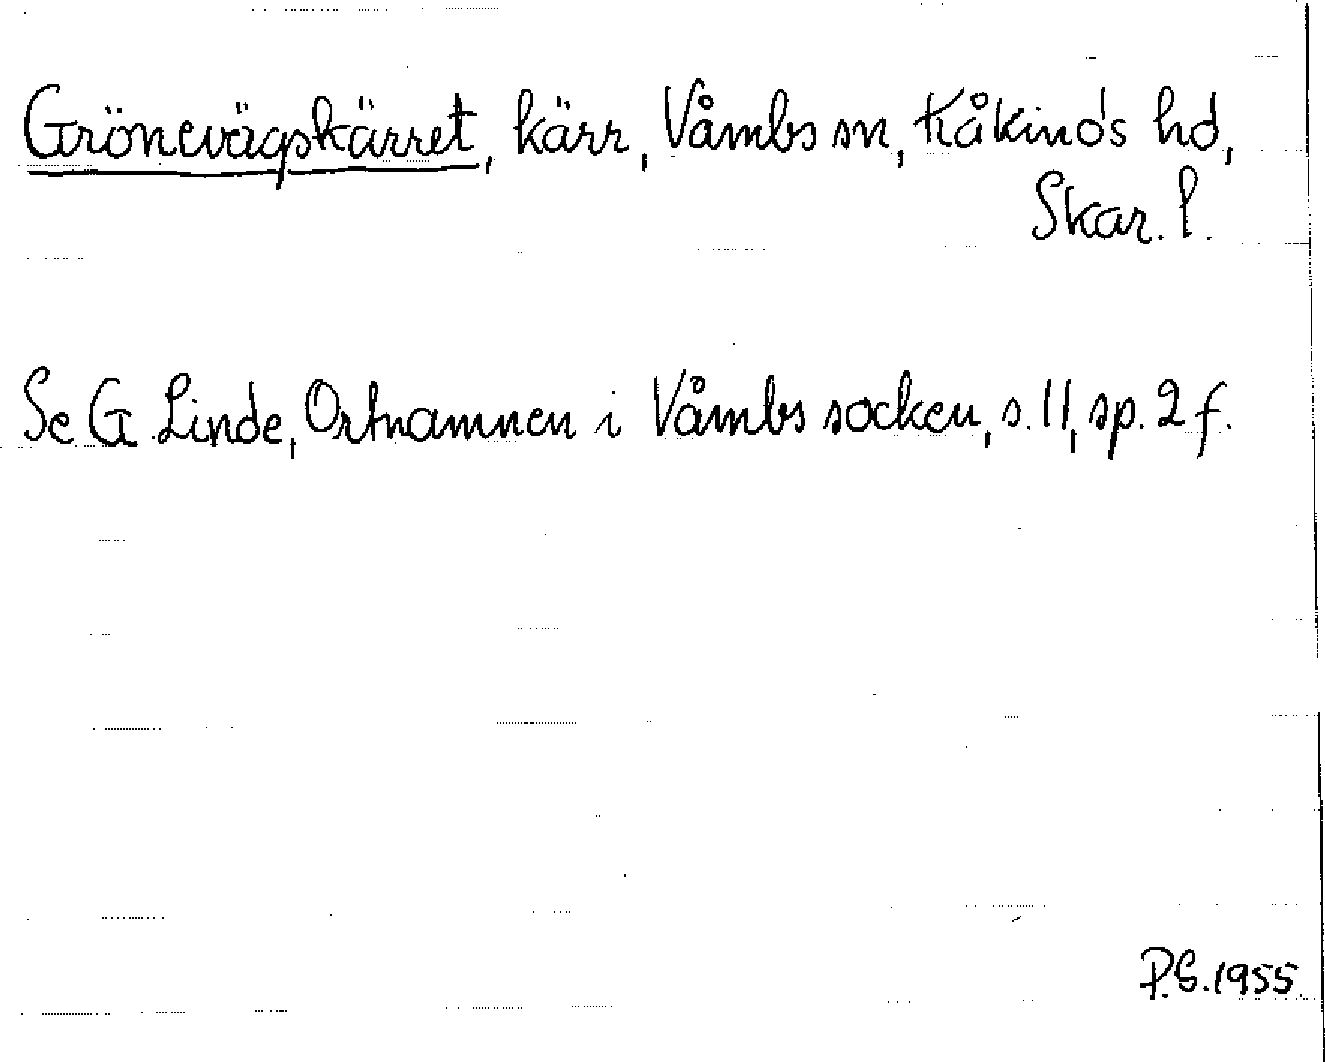 Grönevägskärret, kärr, Våmbs sn, Kåkinds hd,
Skar. l.
Se G. Linde, Ortnamnen i Våmbs socken, s. 11, sp. 2 f.
P.G. 1955.